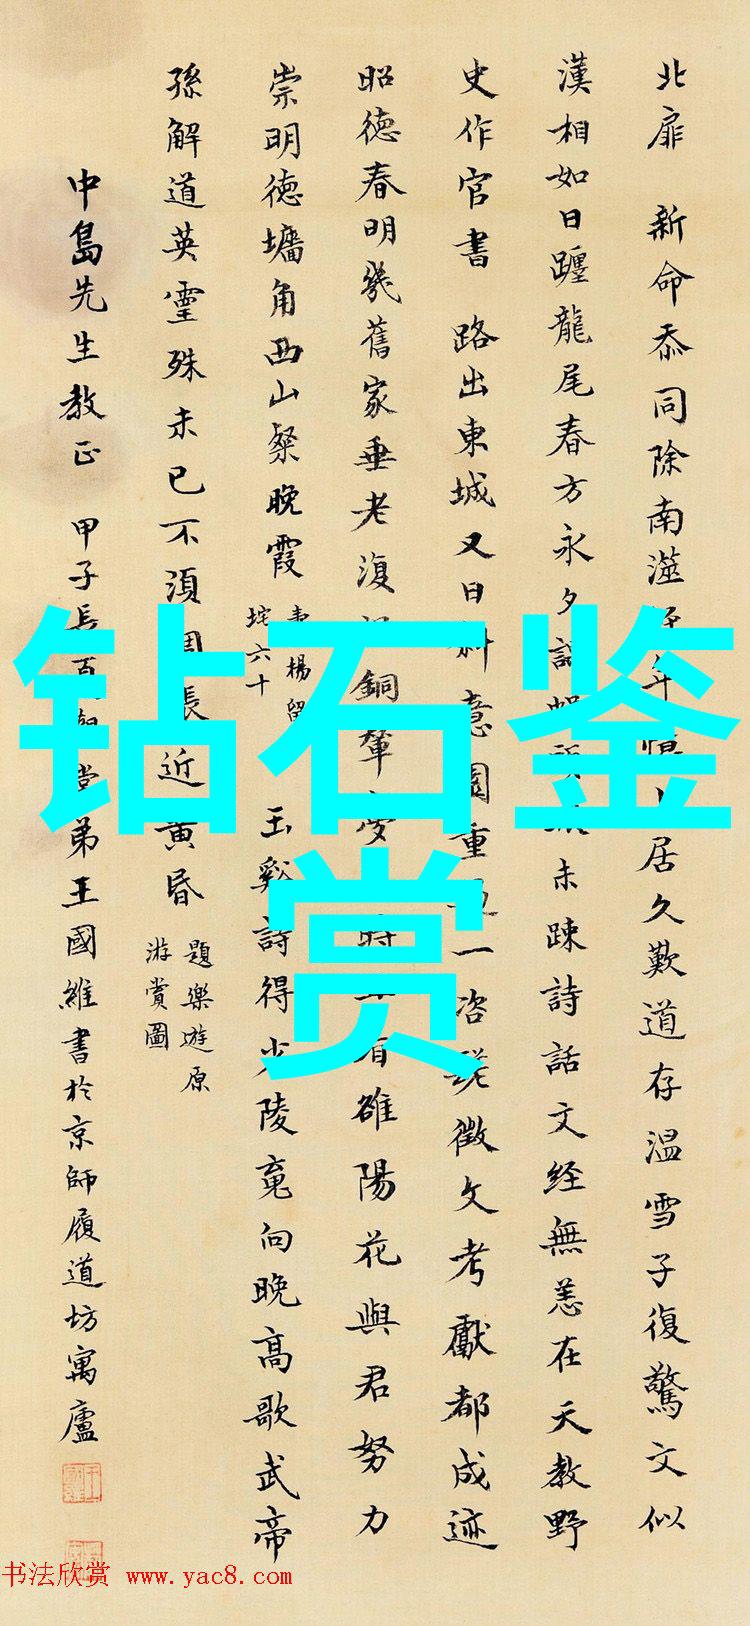 北扉 新命忝同除南澨
年
居久歎道存温雪子復驚文似
漢相如日躔龍尾春方永夕
未疎詩話文経無恙在天教野
史作官書 路出東城又日斜意園重
一咨嗟徵文考獻都成迹
昭德春明幾舊家垂老復
銅輦
有雒陽花與君努力
崇明德壖角西山粲晚霞
韋楊留
垞六十
玉谿詩得少陵竟向晚高歌武帝
孫解道英靈殊未已不須周張近黄昏
題樂遊原
游賞圖
中島先生教正 甲子長
弟王國維書於京師履道坊寓廬
钻石鉴
赏
书法欣赏 www.yac8.com